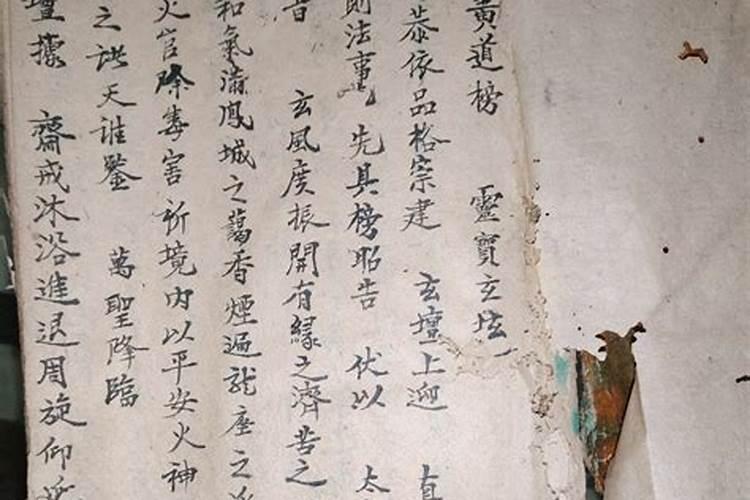 黃道榜 靈寶玄坛
恭依品格崇建 玄壇上迎 真
則法事 先具榜昭告 伏以 太
昔 玄風度振開有緣之濟苦之
和氣滿鳳城之藹香煙遍龍座之
火官降毒害祈境內以平安火神
之誅天誰鑒 萬聖降臨
壇據 齋戒沐浴進退周旋仰